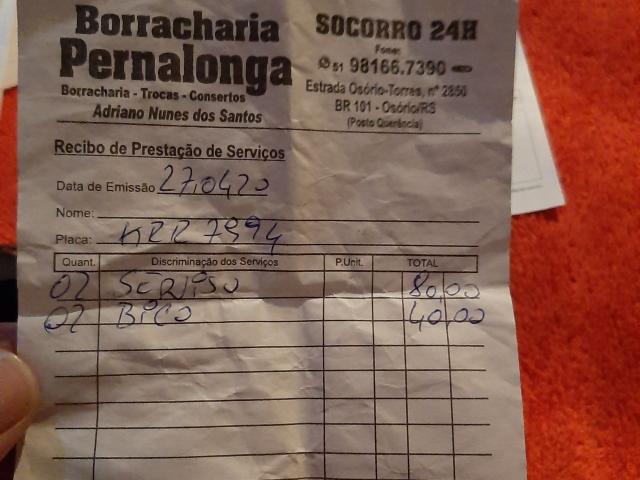 Borracharia
Pernalonga
Borracharia - Trocas - Consertos
Adriano Nunes dos Santos
SOCORRO 24H
Fone:
51 98166.7390
Estrada Osório-Torres, nº 2850
BR 101 - Osório/RS
(Posto Querência)
Recibo de Prestação de Serviços
Data de Emissão 27,04 20
Nome:
Placa: KRR 7994
Quant. Discriminação dos Serviços P.Unit. TOTAL
02 SERVISO 80,00
02 BICO 40,00